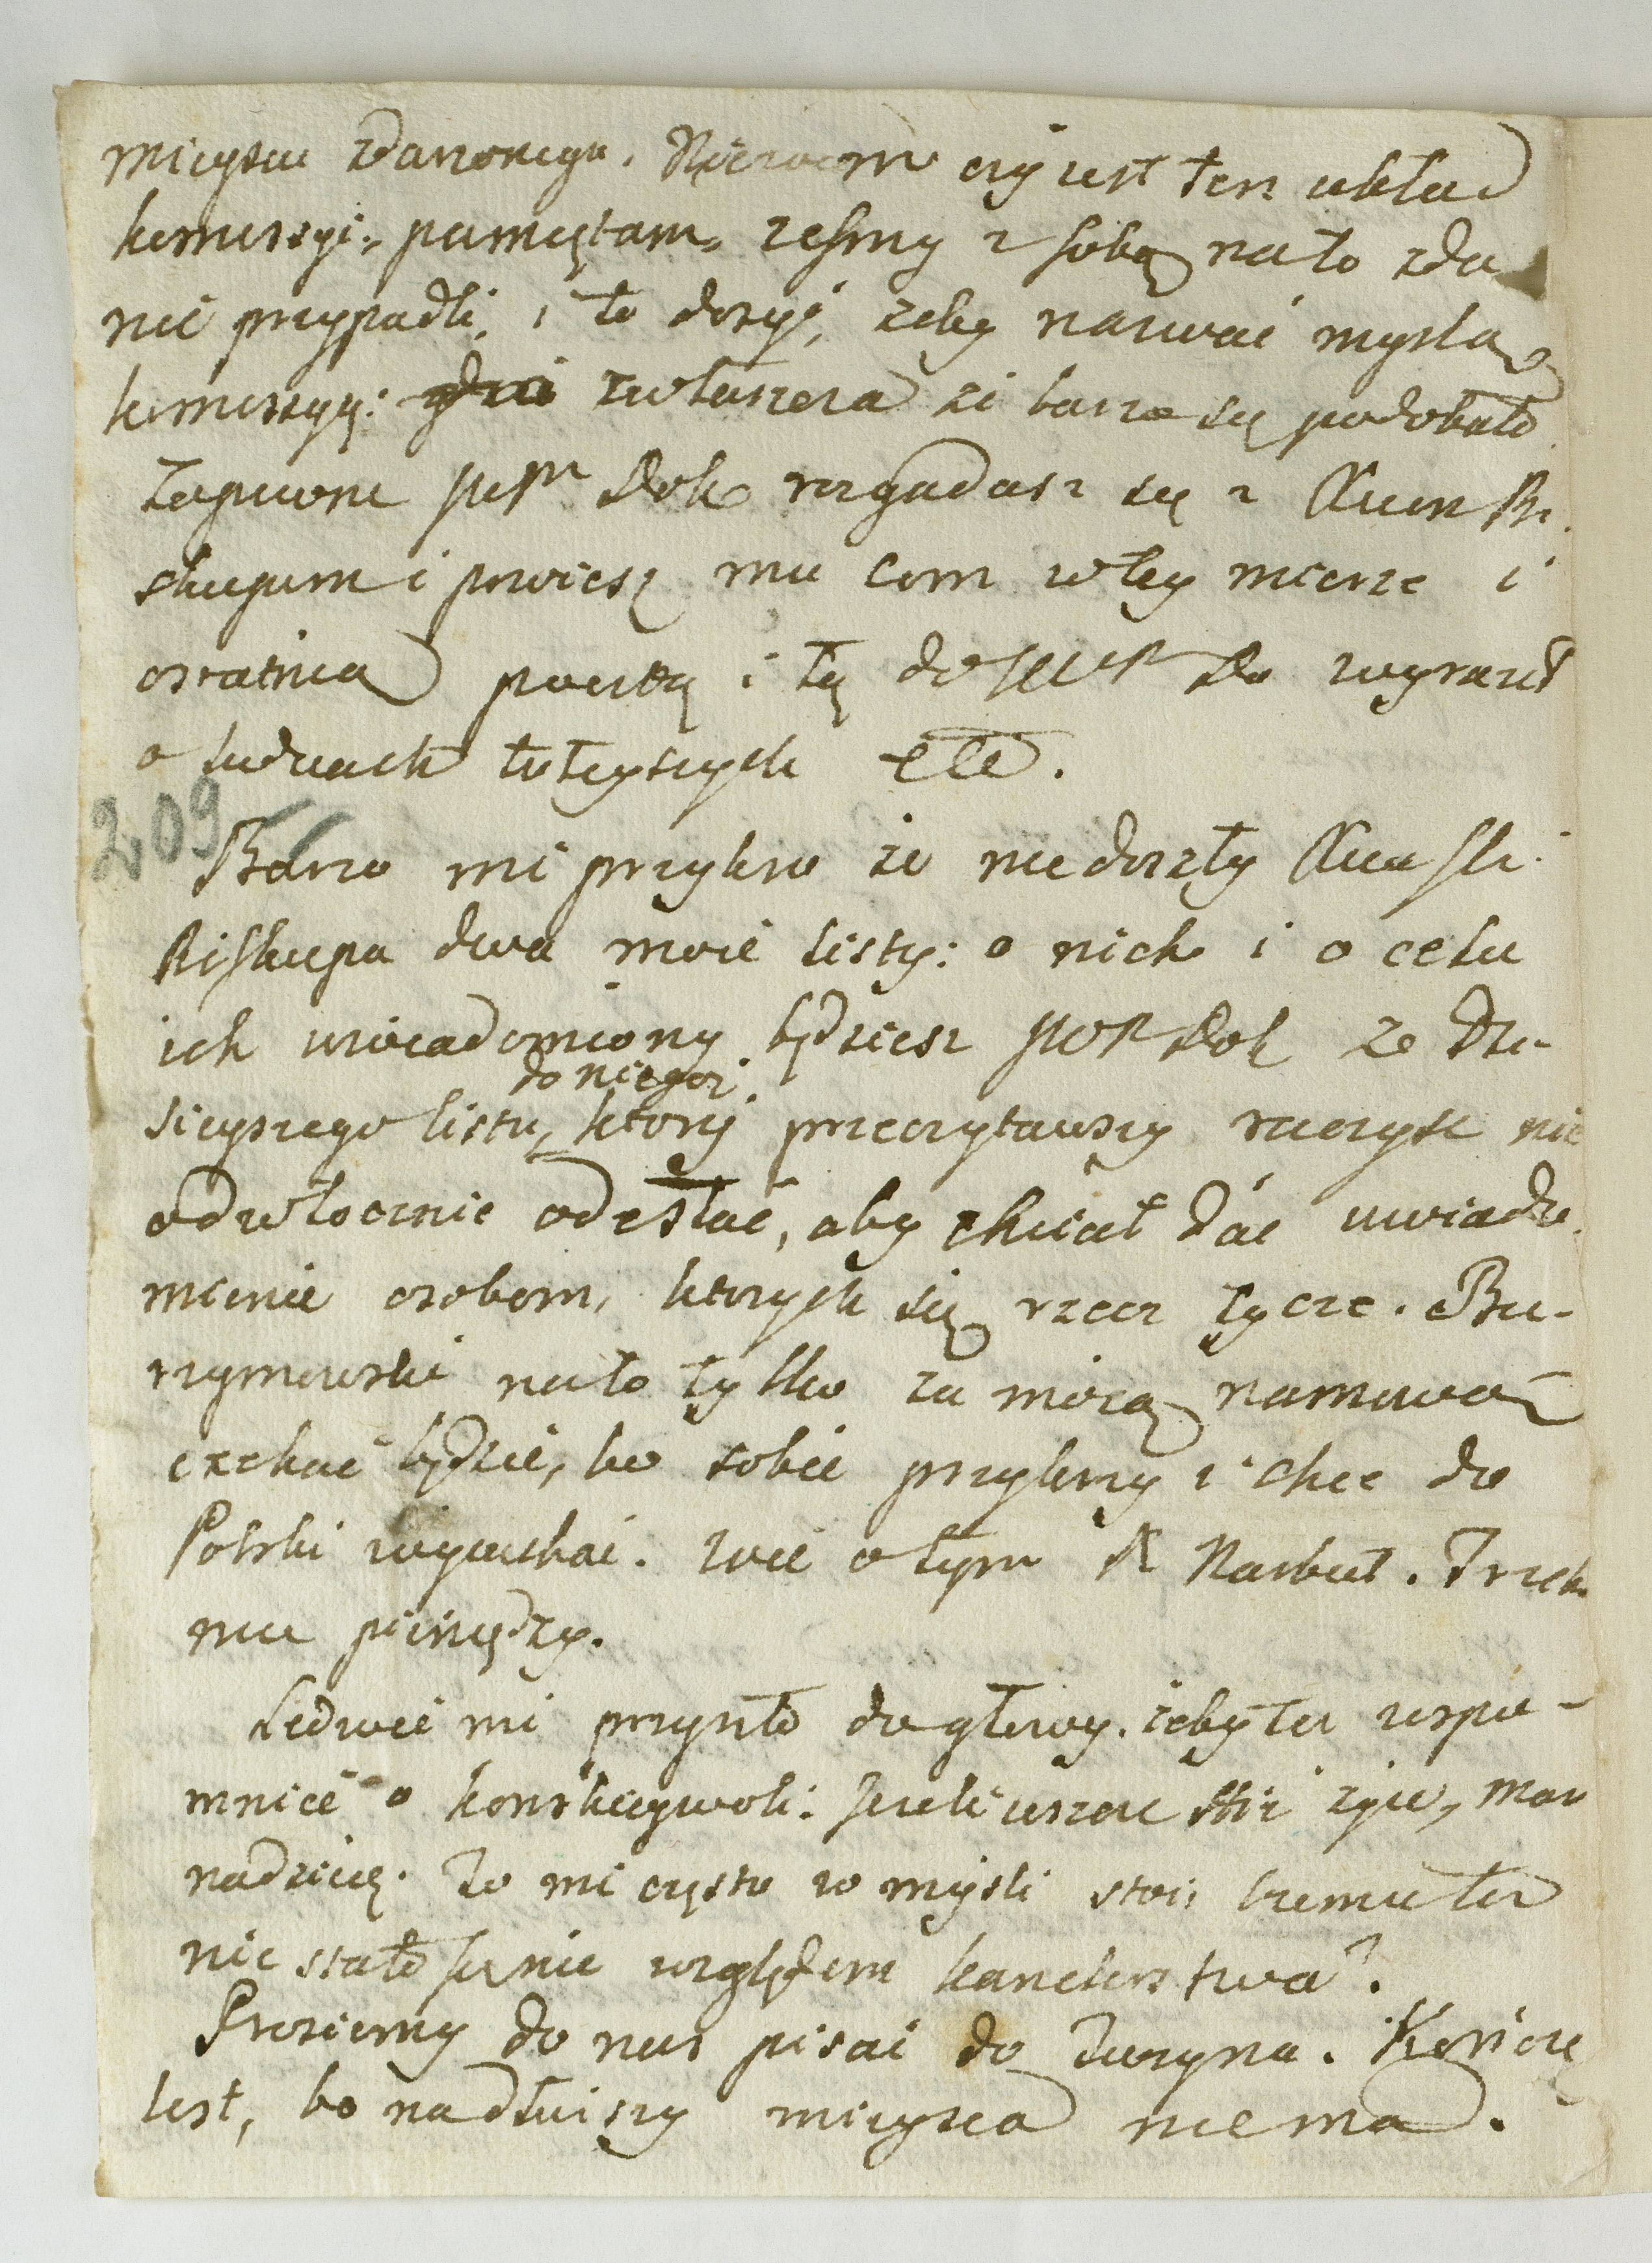 mieyscu zdarzonego. Niewiem czy iest ten układ
kommissyi, pamiętam, zesmy z sobą na to zda
nie przypadli, i to dosyć, zeby nazwać myslą
kommissyi: zwłaszcza zi barzo się podobało
Zapewne Dob rozgadasz się z Bi
skupem i powiesz mu com w tey mierze i
ostatnią pocztą i tą do Do wyraził
o ludziach tuteyszych etc.
209
Barzo mi przykro że niedoszły
Biskupa dwa moie listy: o nich i o celu
ich uwiadomiony będziesz Dob ze dzi-
sieyszego listu do niegoż, ktory przeczytawszy raczysz nie
odwłocznie odesłać, aby chciał dać uwiado
mienie osobom, ktorych się rzecz tycze. Bu-
rzymowski na to tylko za moią namową
czekać będzie, bo sobie przykrzy i chce do
Polski wyiechać. wie o tym X Narbut. Trzeba
mu pieniędzy.
Ledwie mi przyszło do głowy. żeby też wspo-
mnieć o konskieywoli. Jezeli ieszcze żyie, mam
nadzieię. To mi często w mysli stoi, czemu też
nie stało się nic względem kanclerstwa?
Prosiemy do nas pisać do Turyna. Kończę
list, bo na dłuższy mieysca nie ma.